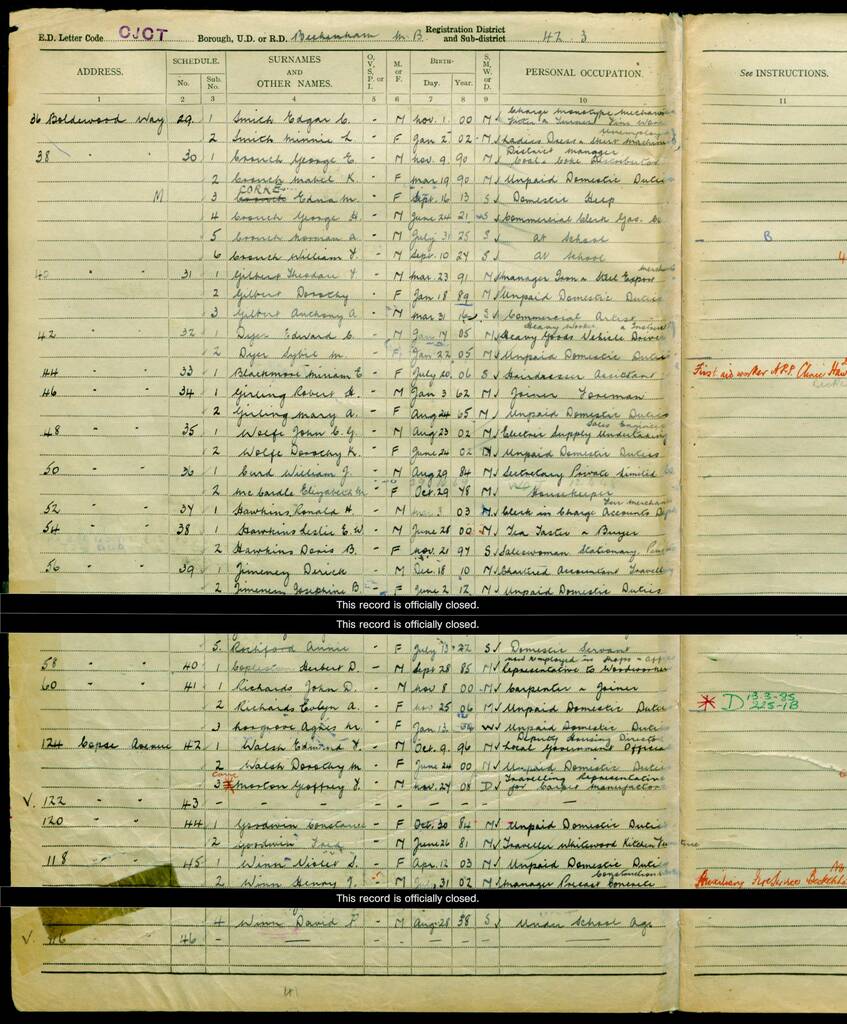 E.D. Letter Code CJCT Borough, U.D. or R.D. Beckenham M.B. Registration District and Sub-district 42 3
ADDRESS. SCHEDULE. SURNAMES AND OTHER NAMES. O, V, S, P, or I M. or F. BIRTH- S, M, W, or D. PERSONAL OCCUPATION. See INSTRUCTIONS.
No. Sub. No. Day. Year.
1 2 3 4 5 6 7 8 9 10 11
Charge monotype mechanic
36 Boldewood Way 29 1 Smich Edgar C. - M Nov. 1 00 M
2 Smich Minnie L. - F Jan 2 02 M Ladies Dress & Skirt Machinist
District Manager
38 " " 30 1 Crouch George E. - M Nov. 9 90 M Coal & Coke Distributor
2 Crouch Mabel K. - F Mar 19 90 M Unpaid Domestic Duties
CORKE
M 3 Crouch Edna M. - F Sept. 16 13 S Domestic Help
4 Crouch George H. - M June 24 21 S Commercial Clerk Gas Co
5 Crouch Norman A. - M July 31 25 S At School - B
6 Crouch William F. - M Sept. 10 27 S At School
merchant
40 " " 31 1 Gilbert Theodore F. - M Mar 23 91 M Manager Iron & Steel Export
2 Gilbert Dorothy - F Jan 18 89 M Unpaid Domestic Duties
3 Gilbert Anthony A. - M Mar 31 16 S Commercial Artist
Heavy Worker
42 " " 32 1 Dyer Edward C. - M Jan 14 05 M Heavy Goods Vehicle Driver
2 Dyer Sybil M. - F Jan 22 05 M Unpaid Domestic Duties
44 " " 33 1 Blackmore Miriam E - F July 20 06 S Hairdresser Assistant First aid worker A.R.P.
46 " " 34 1 Girling Robert H. - M Jan 3 62 M Joiner Foreman
2 Girling Mary A. - F Aug 24 65 M Unpaid Domestic Duties
Sales Engineer
48 " " 35 1 Wolfe John C.G. - M Aug 23 02 M Electric Supply Undertaking
2 Wolfe Dorothy K. - F June 24 02 M Unpaid Domestic Duties
50 " " 36 1 Card William J. - M Aug 29 84 M Secretary Private Limited Co
2 Mc Cardle Elizabeth M - F Oct. 29 78 M Housekeeper
merchant
52 " " 37 1 Hawkins Ronald H. - M 3 03 M Clerk in Charge Accounts Dept
54 " " 38 1 Hawkins Leslie E.W. - M June 28 00 M Tea Taster & Buyer
2 Hawkins Doris B. - F Nov. 21 97 S Saleswoman Stationary
56 " " 39 1 Jimeney Derick - M Dec 18 10 M Chartred Accountant Travelling
2 Jimeney Josephine B. - F June 2 12 M Unpaid Domestic Duties
This record is officially closed.
This record is officially closed.
5 Rochford Annie - F July 13 22 S Domestic Servant
58 " " 40 1 Herbert D. - M Sept 28 85 M Representative to Woodworker
60 " " 41 1 Richards John D. - M Nov 8 00 M Carpenter & Joiner
2 Richards Evelyn A. - F Nov 25 06 M Unpaid Domestic Duties D 13.3-85 225-1B
3 Agnes M - F Jan 13 W Unpaid Domestic Duties
Deputy Housing Director
124 Copse Avenue 42 1 Walsh Edmund F. - M Oct. 9 96 M Local Government Officer
2 Walsh Dorothy M - F June 24 00 M Unpaid Domestic Duties
Travelling Representative
3 Morton Geoffrey F. - M Nov. 27 08 D for Carpet Manufactor
V. 122 " " 43 - - - - - -
120 " " 44 1 Goodwin Constance - F Oct. 30 84 M Unpaid Domestic Duties
2 Goodwin Fred - M June 26 81 M Traveller Whitewood Kitchen Furniture
118 " " 45 1 Winn Violet S. - F Apr. 12 03 M Unpaid Domestic Duties
Constructional
2 Winn Henry J. - M July 31 02 M Manager Precast Concrete Auxiliary Fire Service
This record is officially closed.
4 Winn David P. - M Aug 28 38 S Under School Age
V. 116 46 - - -